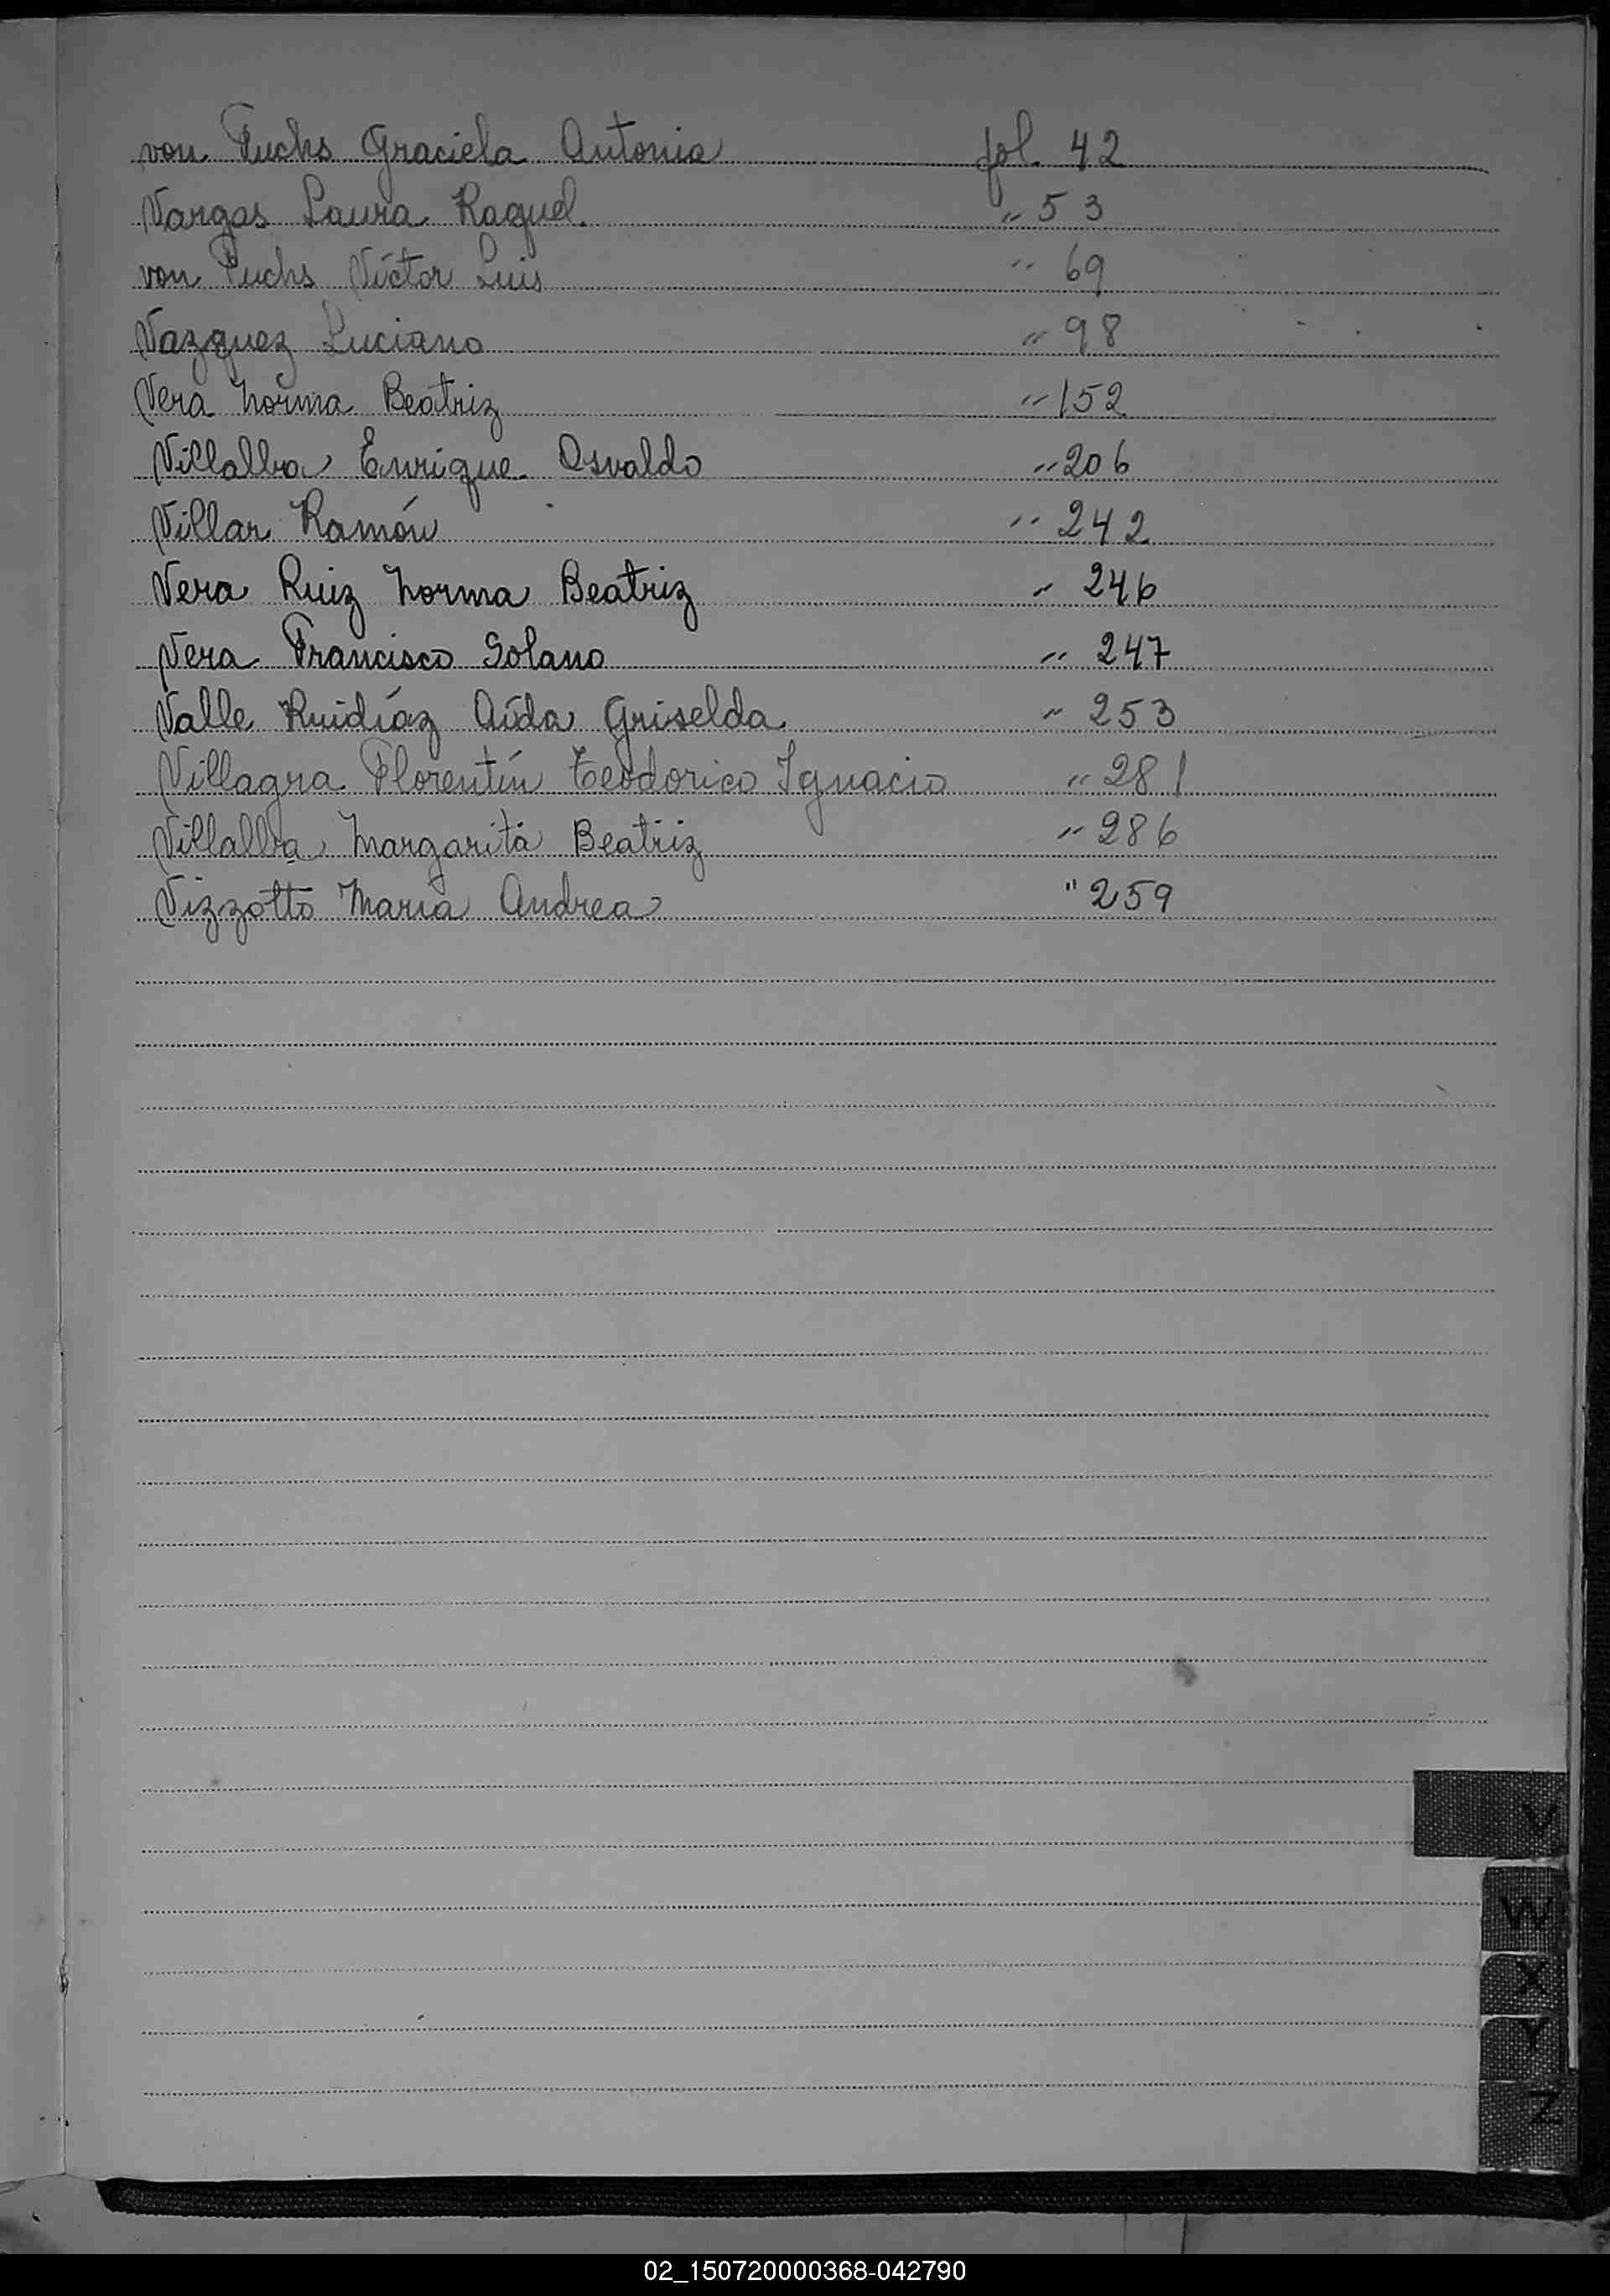 von Fuchs Graciela Antonia fol. 42
Vargas Laura Raquel. " 53
von Fuchs Víctor Luis " 69
Vazquez Luciano " 98
Vera Norma Beatriz " 152
Villalba Enrique Osvaldo " 206
Villar Ramón " 242
Vera Ruiz Norma Beatriz " 246
Vera Francisco Solano " 247
Valle Ruidíaz Aída Griselda " 253
Villagra Florentín Teodorico Ignacio " 281
Villalba Margarita Beatriz " 286
Vizzotto María Andrea " 259
V
W
X
Y
Z
02_150720000368-042790